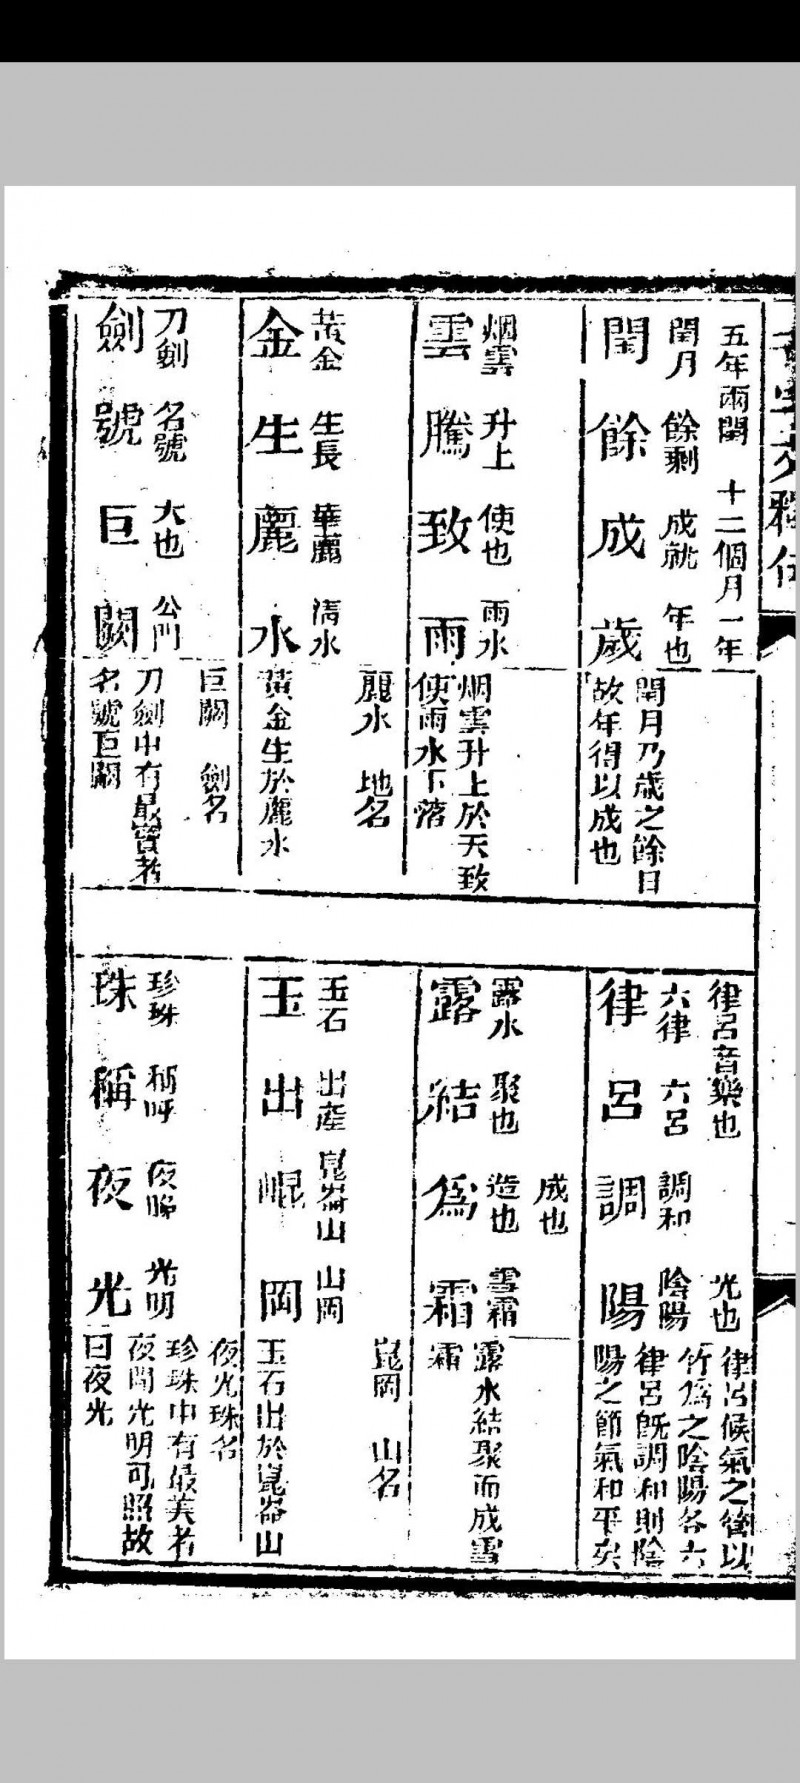 千字文釋
五年兩閏 十二個月一年
閏月 餘剩 成就 年也
閏餘成歲
閏月乃歲之餘日
故年得以成也
律呂音樂也 光也
六律 六呂 調和 陰陽
律呂調陽
律呂候氣之管以
竹爲之陰陽各六
律呂旣調和則陰
陽之節氣和平矣
烟雲 升上 使也 雨水
雲騰致雨
烟雲升上於天致
使雨水下落
成也
露水 聚也 造也 雪霜
露結爲霜
露水結聚而成雪
霜
黃金 生長 華麗 清水
金生麗水
麗水 地名
黃金生於麗水
玉石 出產 崑崙山 山岡
玉出崐岡
崑岡 山名
玉石出於崑崙山
刀劍 名號 大也 公門
劍號巨闕
巨闕 劍名
刀劍中有最寶者
名號巨闕
珍珠 稱呼 夜晚 光明
珠稱夜光
夜光珠名
珍珠中有最美者
夜間光明可照故
曰夜光